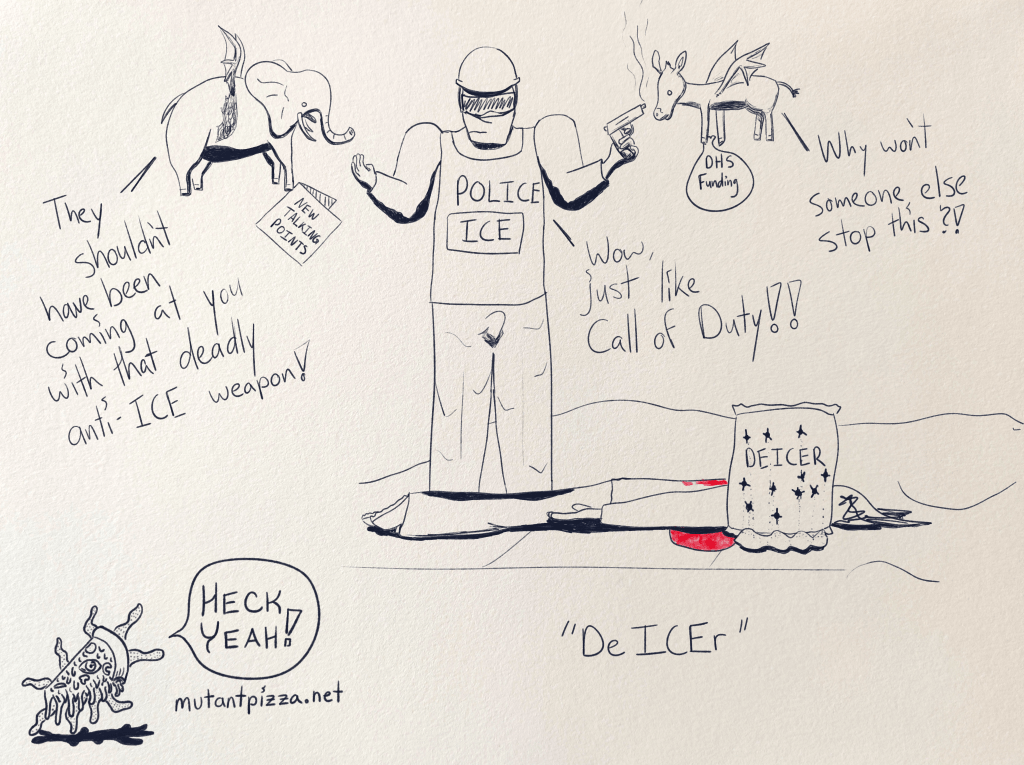 They
shouldn't
have been
coming at you
with that deadly
anti-ICE weapon!
NEW
TALKING
POINTS
POLICE
ICE
DHS
Funding
Why won't
someone else
stop this?!
Wow,
just like
Call of Duty!!
DEICER
"DeICEr"
HECK
YEAH!
mutantpizza.net